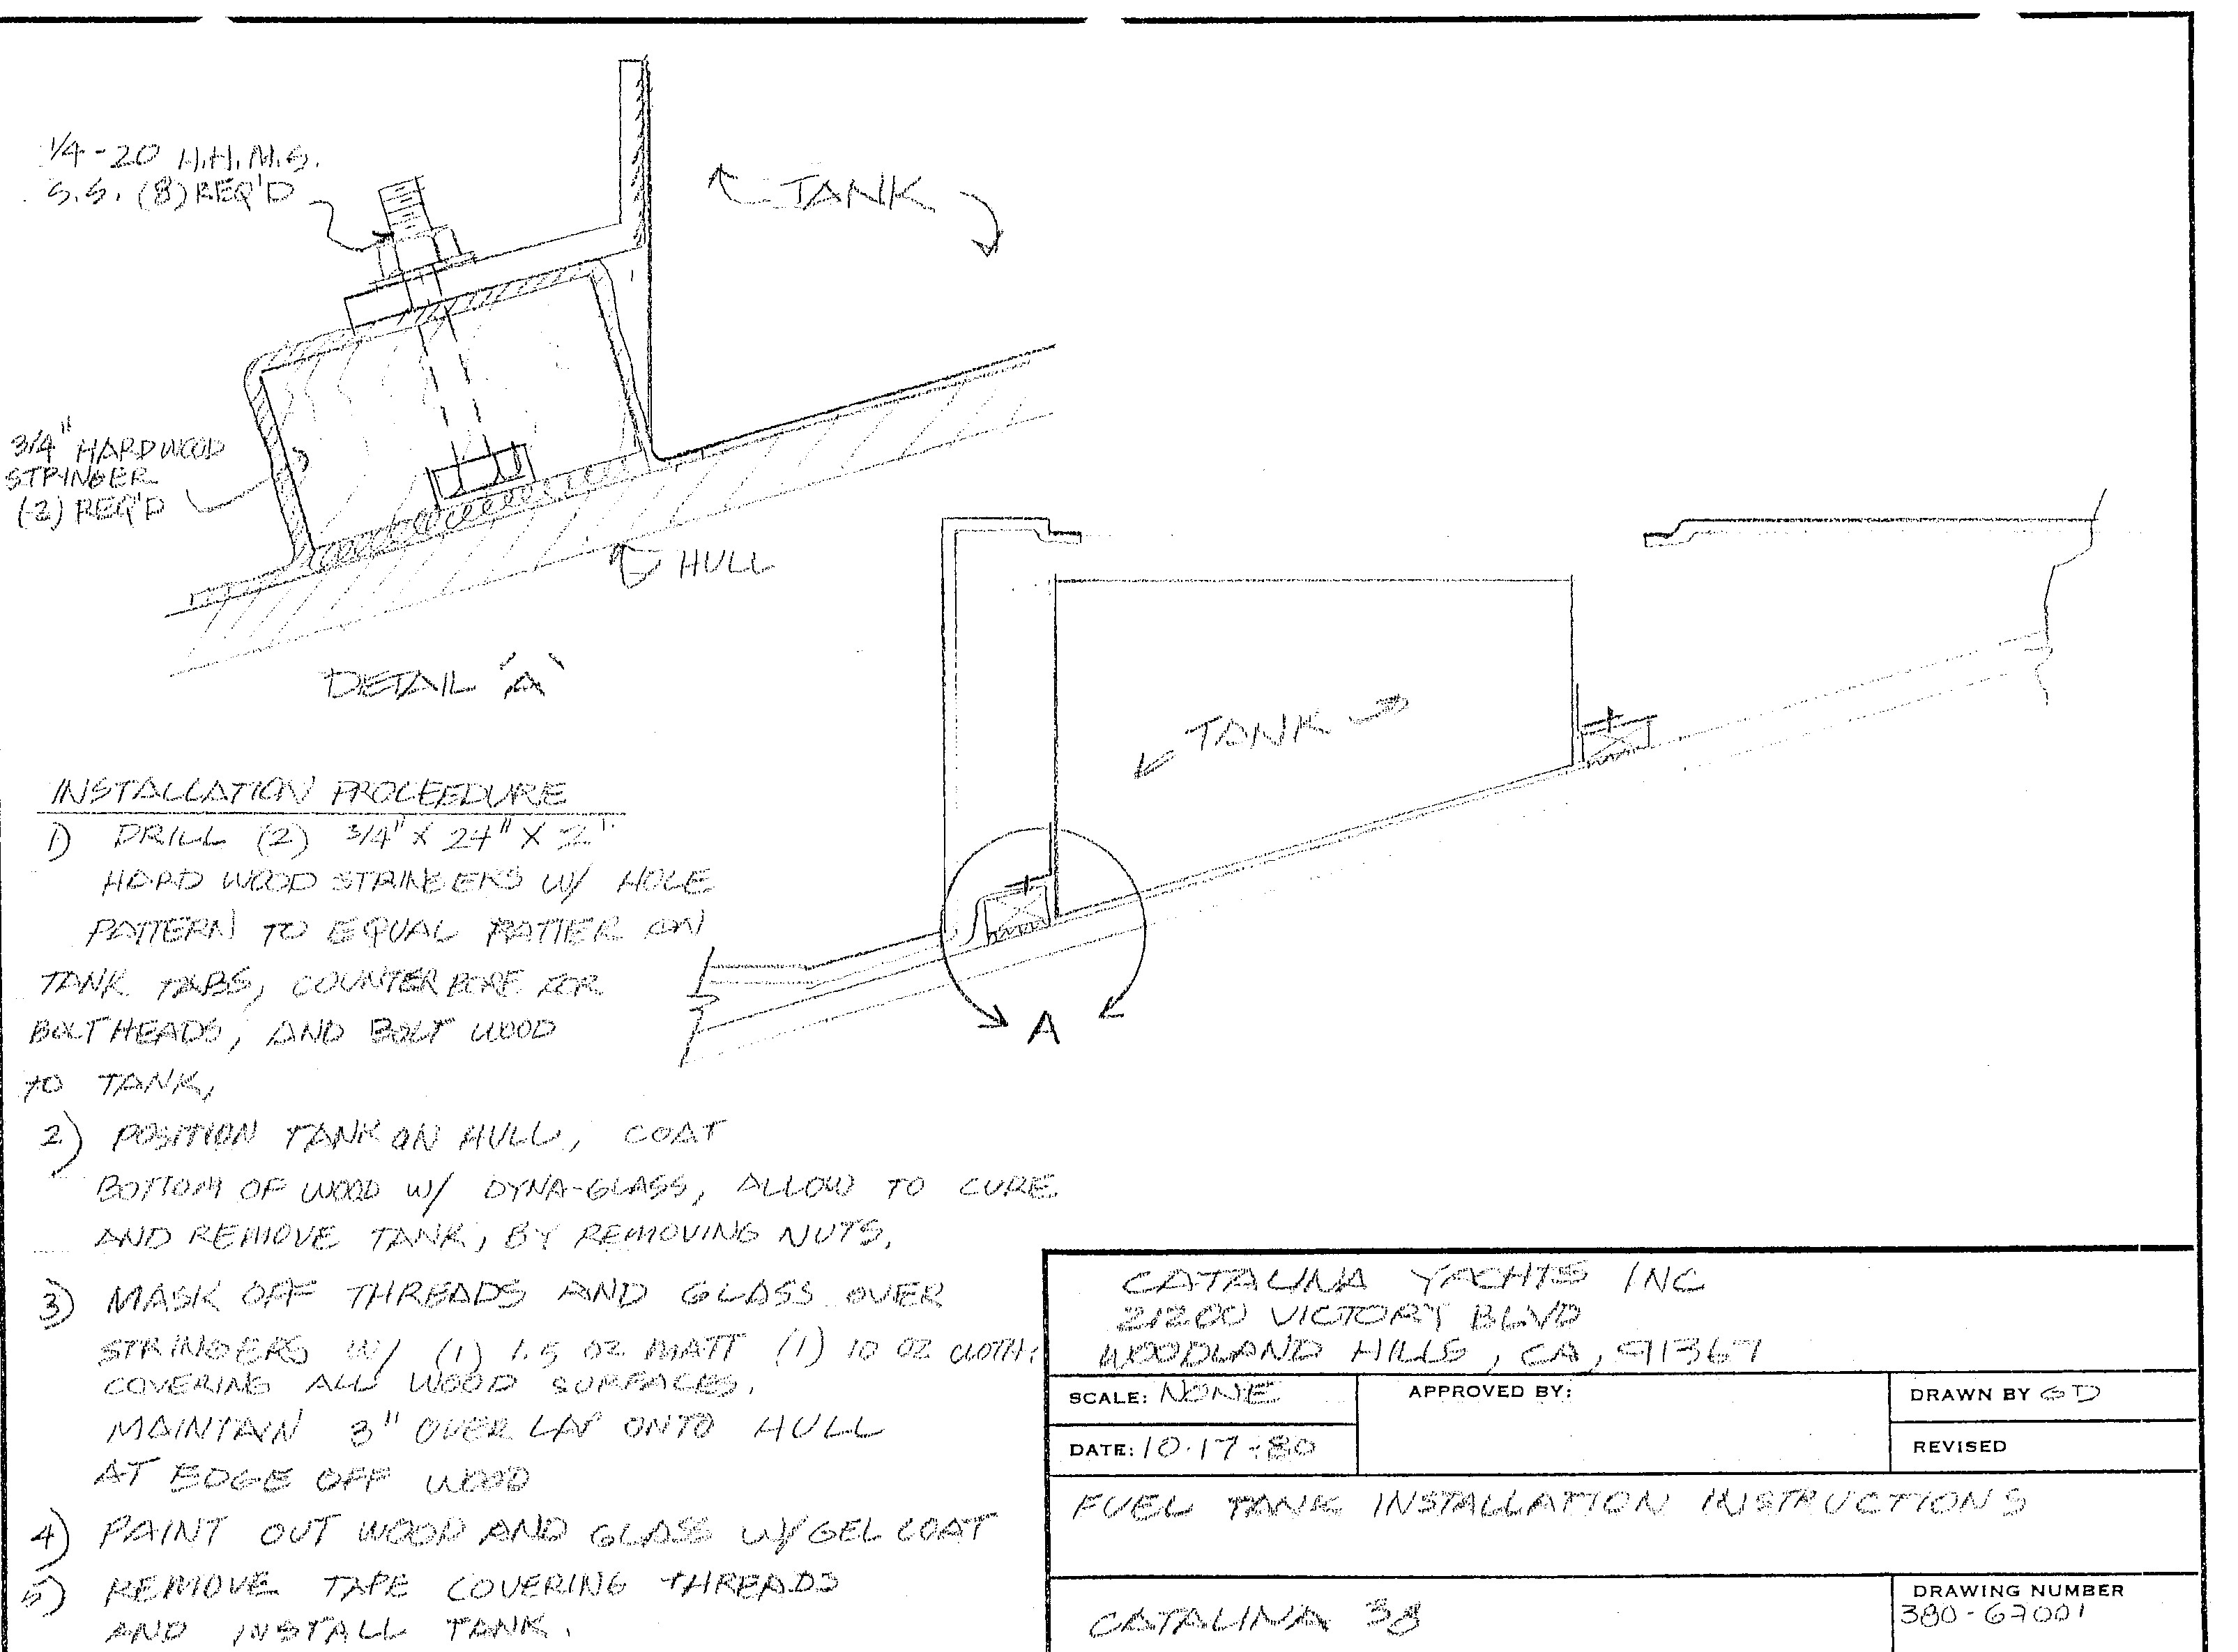 1/4-20 H.H.M.S.
S.S. (8) REQ'D
TANK
3/4" HARDWOOD
STRINGER
(2) REQ'D
HULL
DETAIL "A"
TANK
A
INSTALLATION PROCEEDURE
1) DRILL (2) 3/4" X 24" X 2"
HARD WOOD STRINGERS W/ HOLE
PATTERN TO EQUAL PATTER ON
TANK TABS, COUNTER BORE FOR
BOLT HEADS, AND BOLT WOOD
TO TANK,
2) POSITION TANK ON HULL, COAT
BOTTOM OF WOOD W/ DYNA-GLASS, ALLOW TO CURE
AND REMOVE TANK, BY REMOVING NUTS.
3) MASK OFF THREADS AND GLASS OVER
STRINGERS W/ (1) 1.5 OZ MATT (1) 10 OZ CLOTH.
COVERING ALL WOOD SURFACES.
MAINTAIN 3" OVER LAP ONTO HULL
AT EDGE OFF WOOD
4) PAINT OUT WOOD AND GLASS W/ GEL COAT
5) REMOVE TAPE COVERING THREADS
AND INSTALL TANK.
CATALINA YACHTS INC
21200 VICTORY BLVD
WOODLAND HILLS, CA, 91367
SCALE: NONE
APPROVED BY:
DRAWN BY GD
DATE: 10-17-80
REVISED
FUEL TANK INSTALLATION INSTRUCTIONS
CATALINA 38
DRAWING NUMBER
380-67001